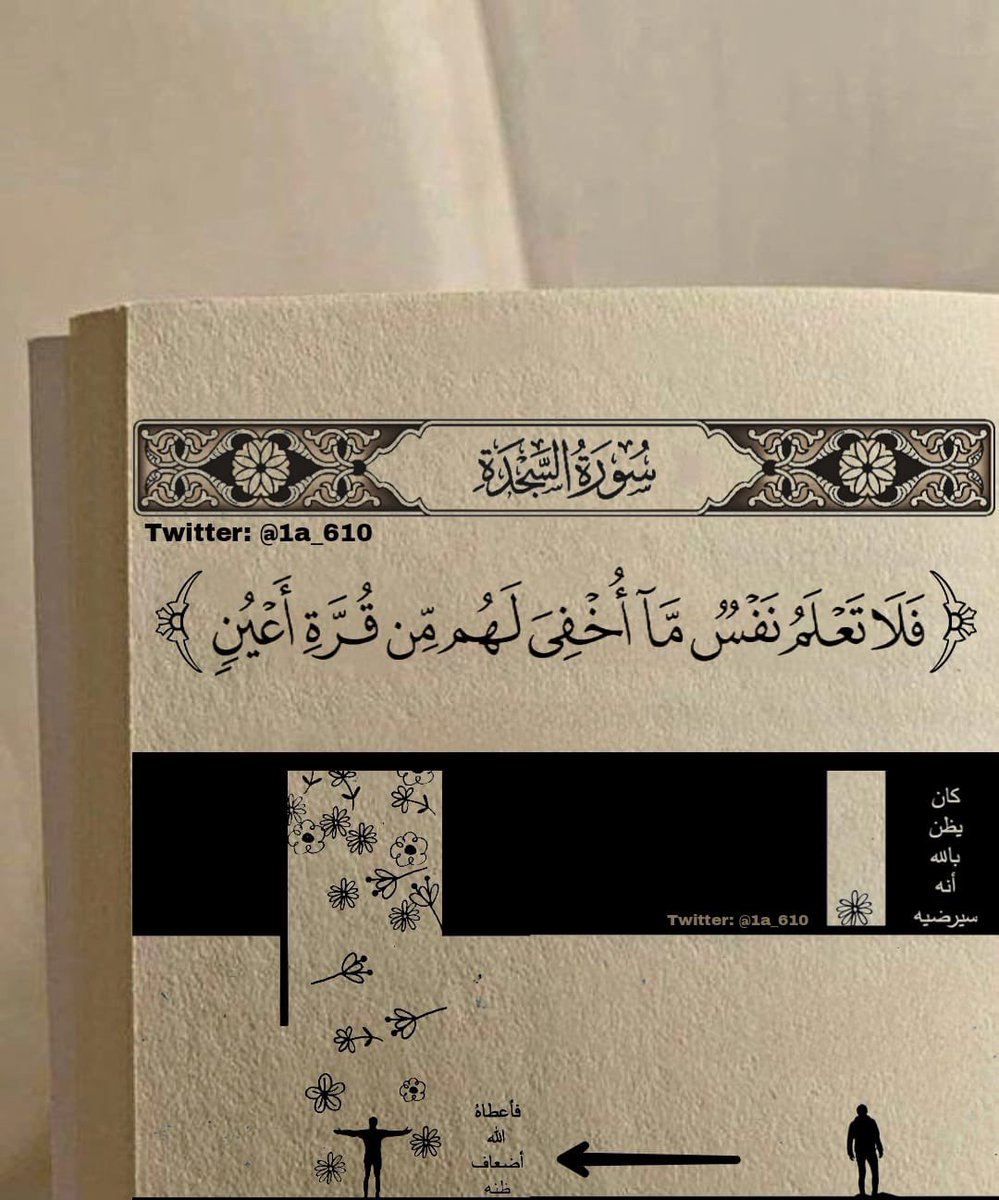 سُورَةُ السَّجْدَةِ
Twitter: @1a_610
﴿فَلَا تَعْلَمُ نَفْسٌ مَّآ أُخْفِىَ لَهُم مِّن قُرَّةِ أَعْيُنٍ﴾
كان
يظن
بالله
أنه
سيرضيه
Twitter: @1a_610
فأعطاهُ
الله
أضعاف
ظنه